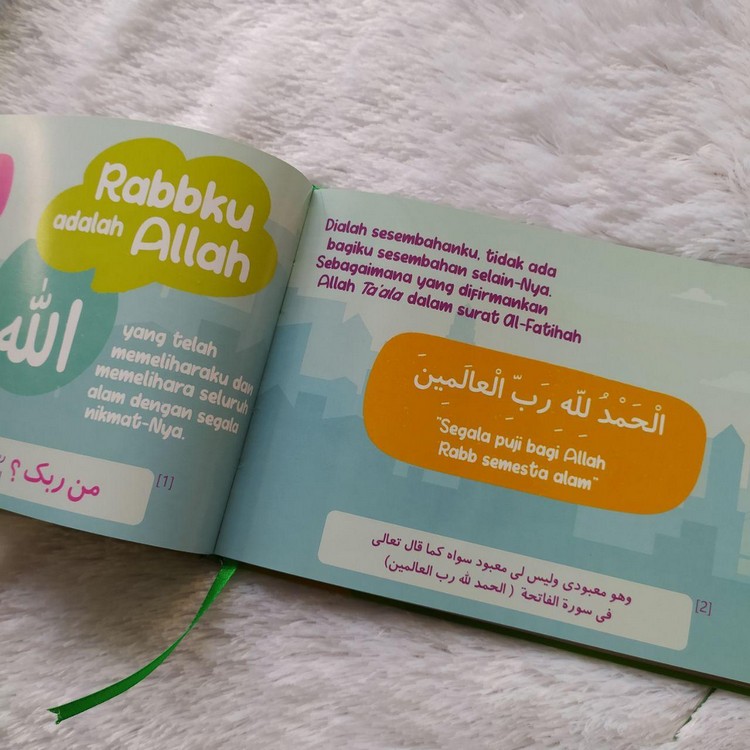 Rabbku
adalah Allah
الله
yang telah
memeliharaku dan
memelihara seluruh
alam dengan segala
nikmat-Nya.
من ربك ؟
[1]
Dialah sesembahanku, tidak ada
bagiku sesembahan selain-Nya.
Sebagaimana yang difirmankan
Allah Ta'ala dalam surat Al-Fatihah
الْحَمْدُ لِلَّهِ رَبِّ الْعَالَمِينَ
"Segala puji bagi Allah
Rabb semesta alam"
وهو معبودى وليس لى معبود سواه كما قال تعالى
فى سورة الفاتحة ( الحمد لله رب العالمين)
[2]